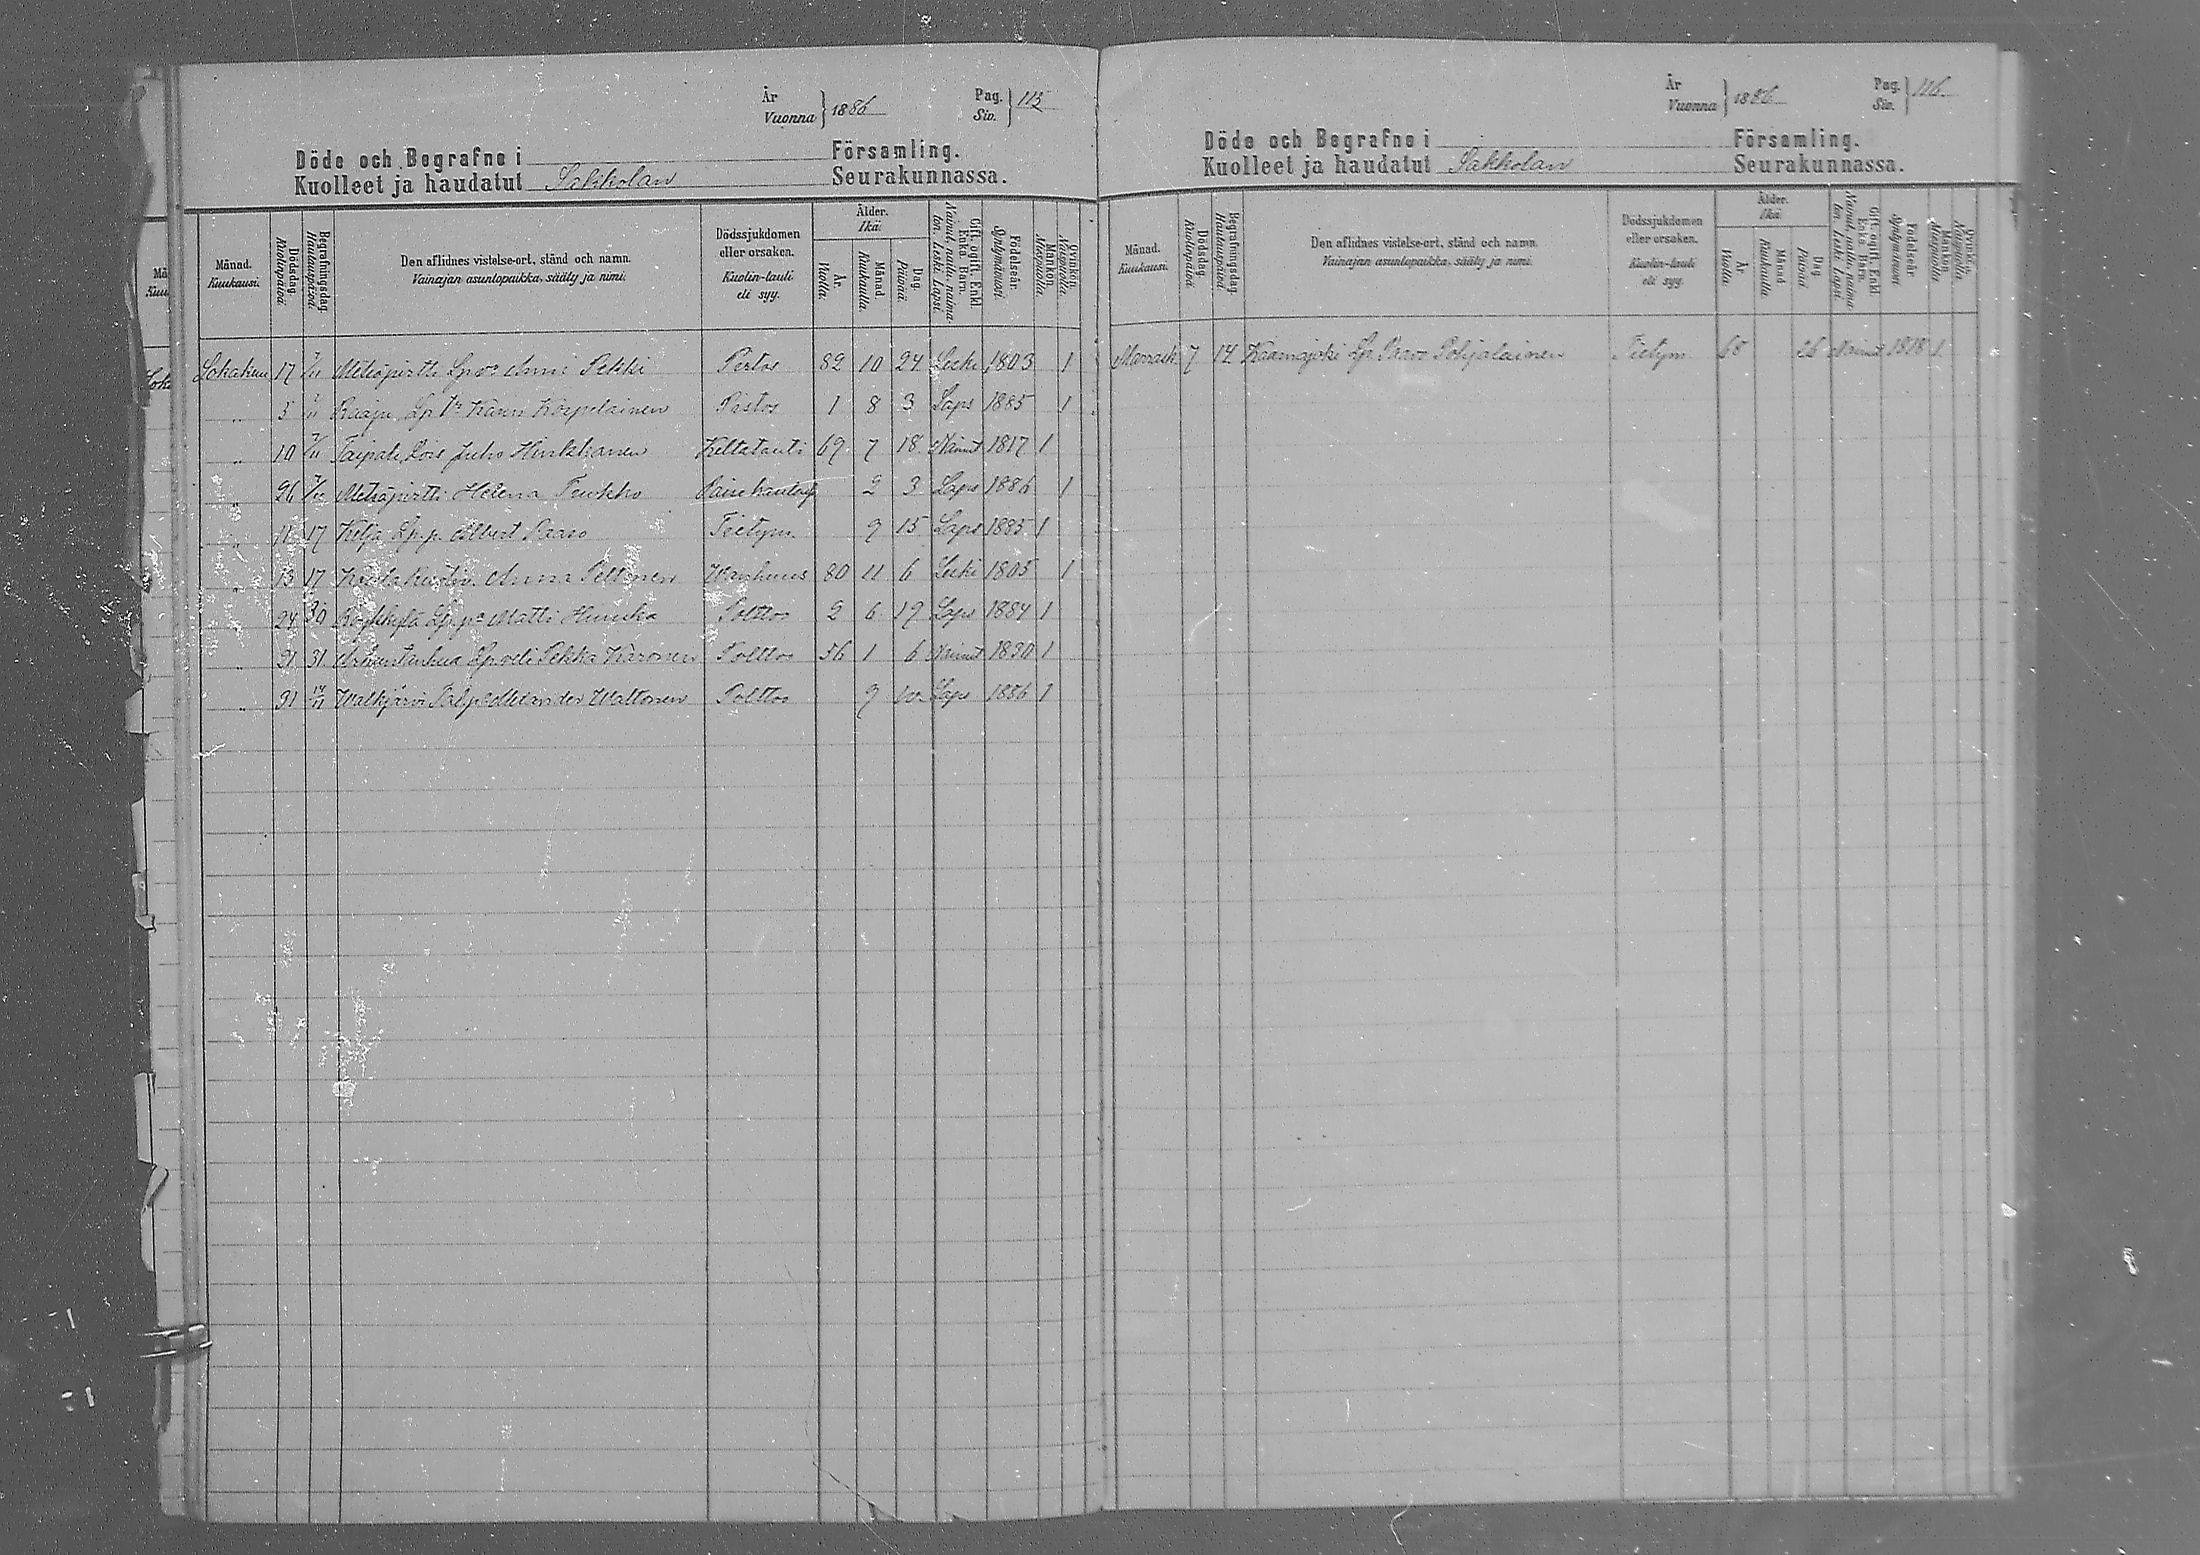 År Vuonna } 1886 Pag. Siv. } 115
Döde och Begrafne i Församling.
Kuolleet ja haudatut Sakkolan Seurakunnassa.
Månad. Kuukausi. Dödsdag. Kuolinpäivä. Begrafningsdag. Hautauspäivä. Den aflidnes vistelse-ort, stånd och namn. Vainajan asuntopaikka, sääty ja nimi. Dödssjukdomen eller orsaken. Kuolin-tauti eli syy. Ålder. Ikä. År. Vuotta. Månad. Kuukautta. Dag. Päivää. Gift, ogift, Enkl. Enka, Barn. Födelseår. Syntymävuosi. Mankön. Miespuolia. Qvinkön.
Lokakuu 17 7/11 Metsäpirtti Anni Pekki 82 10 24 Leski 1803 1
" 5 7/11 Raaju Lp. Korpelainen 1 8 3 Laps 1885 1
" 10 7/11 Taipale Lois Juho Hinkkanen Keltatauti 69 7 18 Nainut 1817 1
" 26 Metsäpirtti Helena Peukko 2 3 Laps 1886 1
" 11 17 Kelja Lp.p. Albert Paaso Tietym. 9 15 Laps 1885 1
" 13 17 Anna Peltonen Wanhuus 80 11 6 Leski 1805 1
" 24 30 Röykkylä Lp.p. Matti Hunukka Polttos 2 6 19 Laps 1884 1
" 31 31 Arkuntanhua Lp veli Pekka Karonen Polttos 56 1 6 Nainut 1830 1
" 31 Walkjärvi Waltonen Polttos 9 Laps 1886 1
År Vuonna } 1886 Pag. Siv. } 116
Döde och Begrafne i Församling.
Kuolleet ja haudatut Sakkolan Seurakunnassa.
Månad. Kuukausi. Dödsdag. Kuolinpäivä. Begrafningsdag. Hautauspäivä. Den aflidnes vistelse-ort, stånd och namn. Vainajan asuntopaikka, sääty ja nimi. Dödssjukdomen eller orsaken. Kuolin-tauti eli syy. Ålder. Ikä. År. Vuotta. Månad. Kuukautta. Dag. Päivää. Gift, ogift, Enkl. Enka, Barn. Födelseår. Syntymävuosi. Mankön. Miespuolia. Qvinkön.
Marrask 7 14 Kaarnajoki Lp. Paavo Pohjalainen Tietym. 68 26 Nainut 1818 1